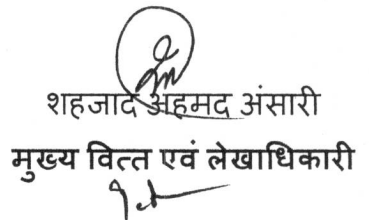 शहजाद अहमद अंसारी
मुख्य वित्त एवं लेखाधिकारी